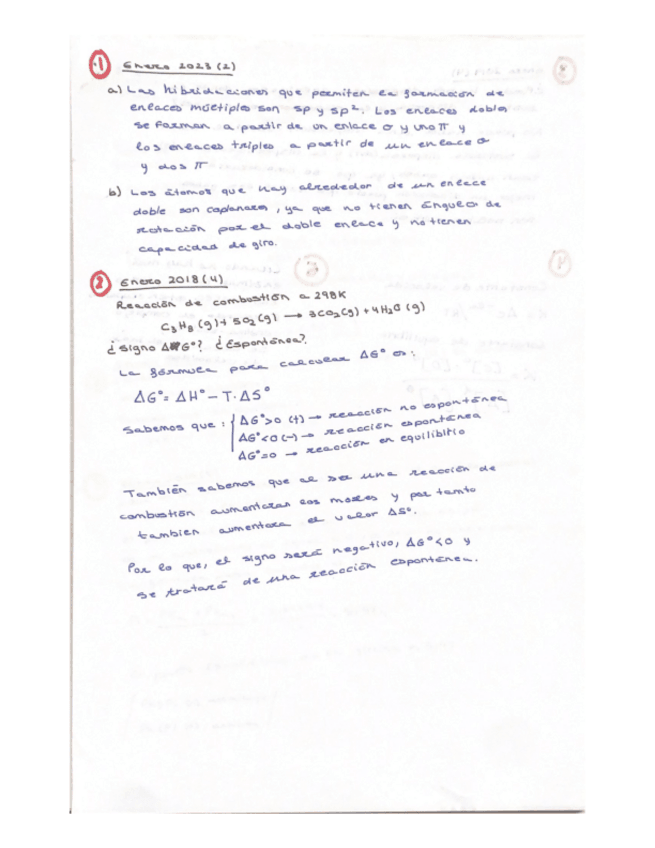 1 Enero 2023 (2)
a) Las hibridaciones que permiten la formación de
enlaces múltiples son sp y sp². Los enlaces dobles
se forman a partir de un enlace σ y uno π y
los enlaces triples a partir de un enlace σ
y dos π
b) Los átomos que hay alrededor de un enlace
doble son coplanares, ya que no tienen ángulo de
rotación por el doble enlace y no tienen
capacidad de giro.
2 Enero 2018 (4)
Reacción de combustión a 298K
C₃H₈ (g) + 5O₂ (g) → 3CO₂(g) + 4H₂O (g)
¿Signo ΔG°? ¿Espontánea?
La fórmula para calcular ΔG° es:
ΔG° = ΔH° - T·ΔS°
Sabemos que: { ΔG°>0 (+) → reacción no espontánea
ΔG°<0 (-) → reacción espontánea
ΔG°=0 → reacción en equilibrio
También sabemos que al ser una reacción de
combustión aumentaran los moles y por tanto
tambien aumentara el valor ΔS°.
Por lo que, el signo será negativo, ΔG°<0 y
se tratará de una reacción espontánea.